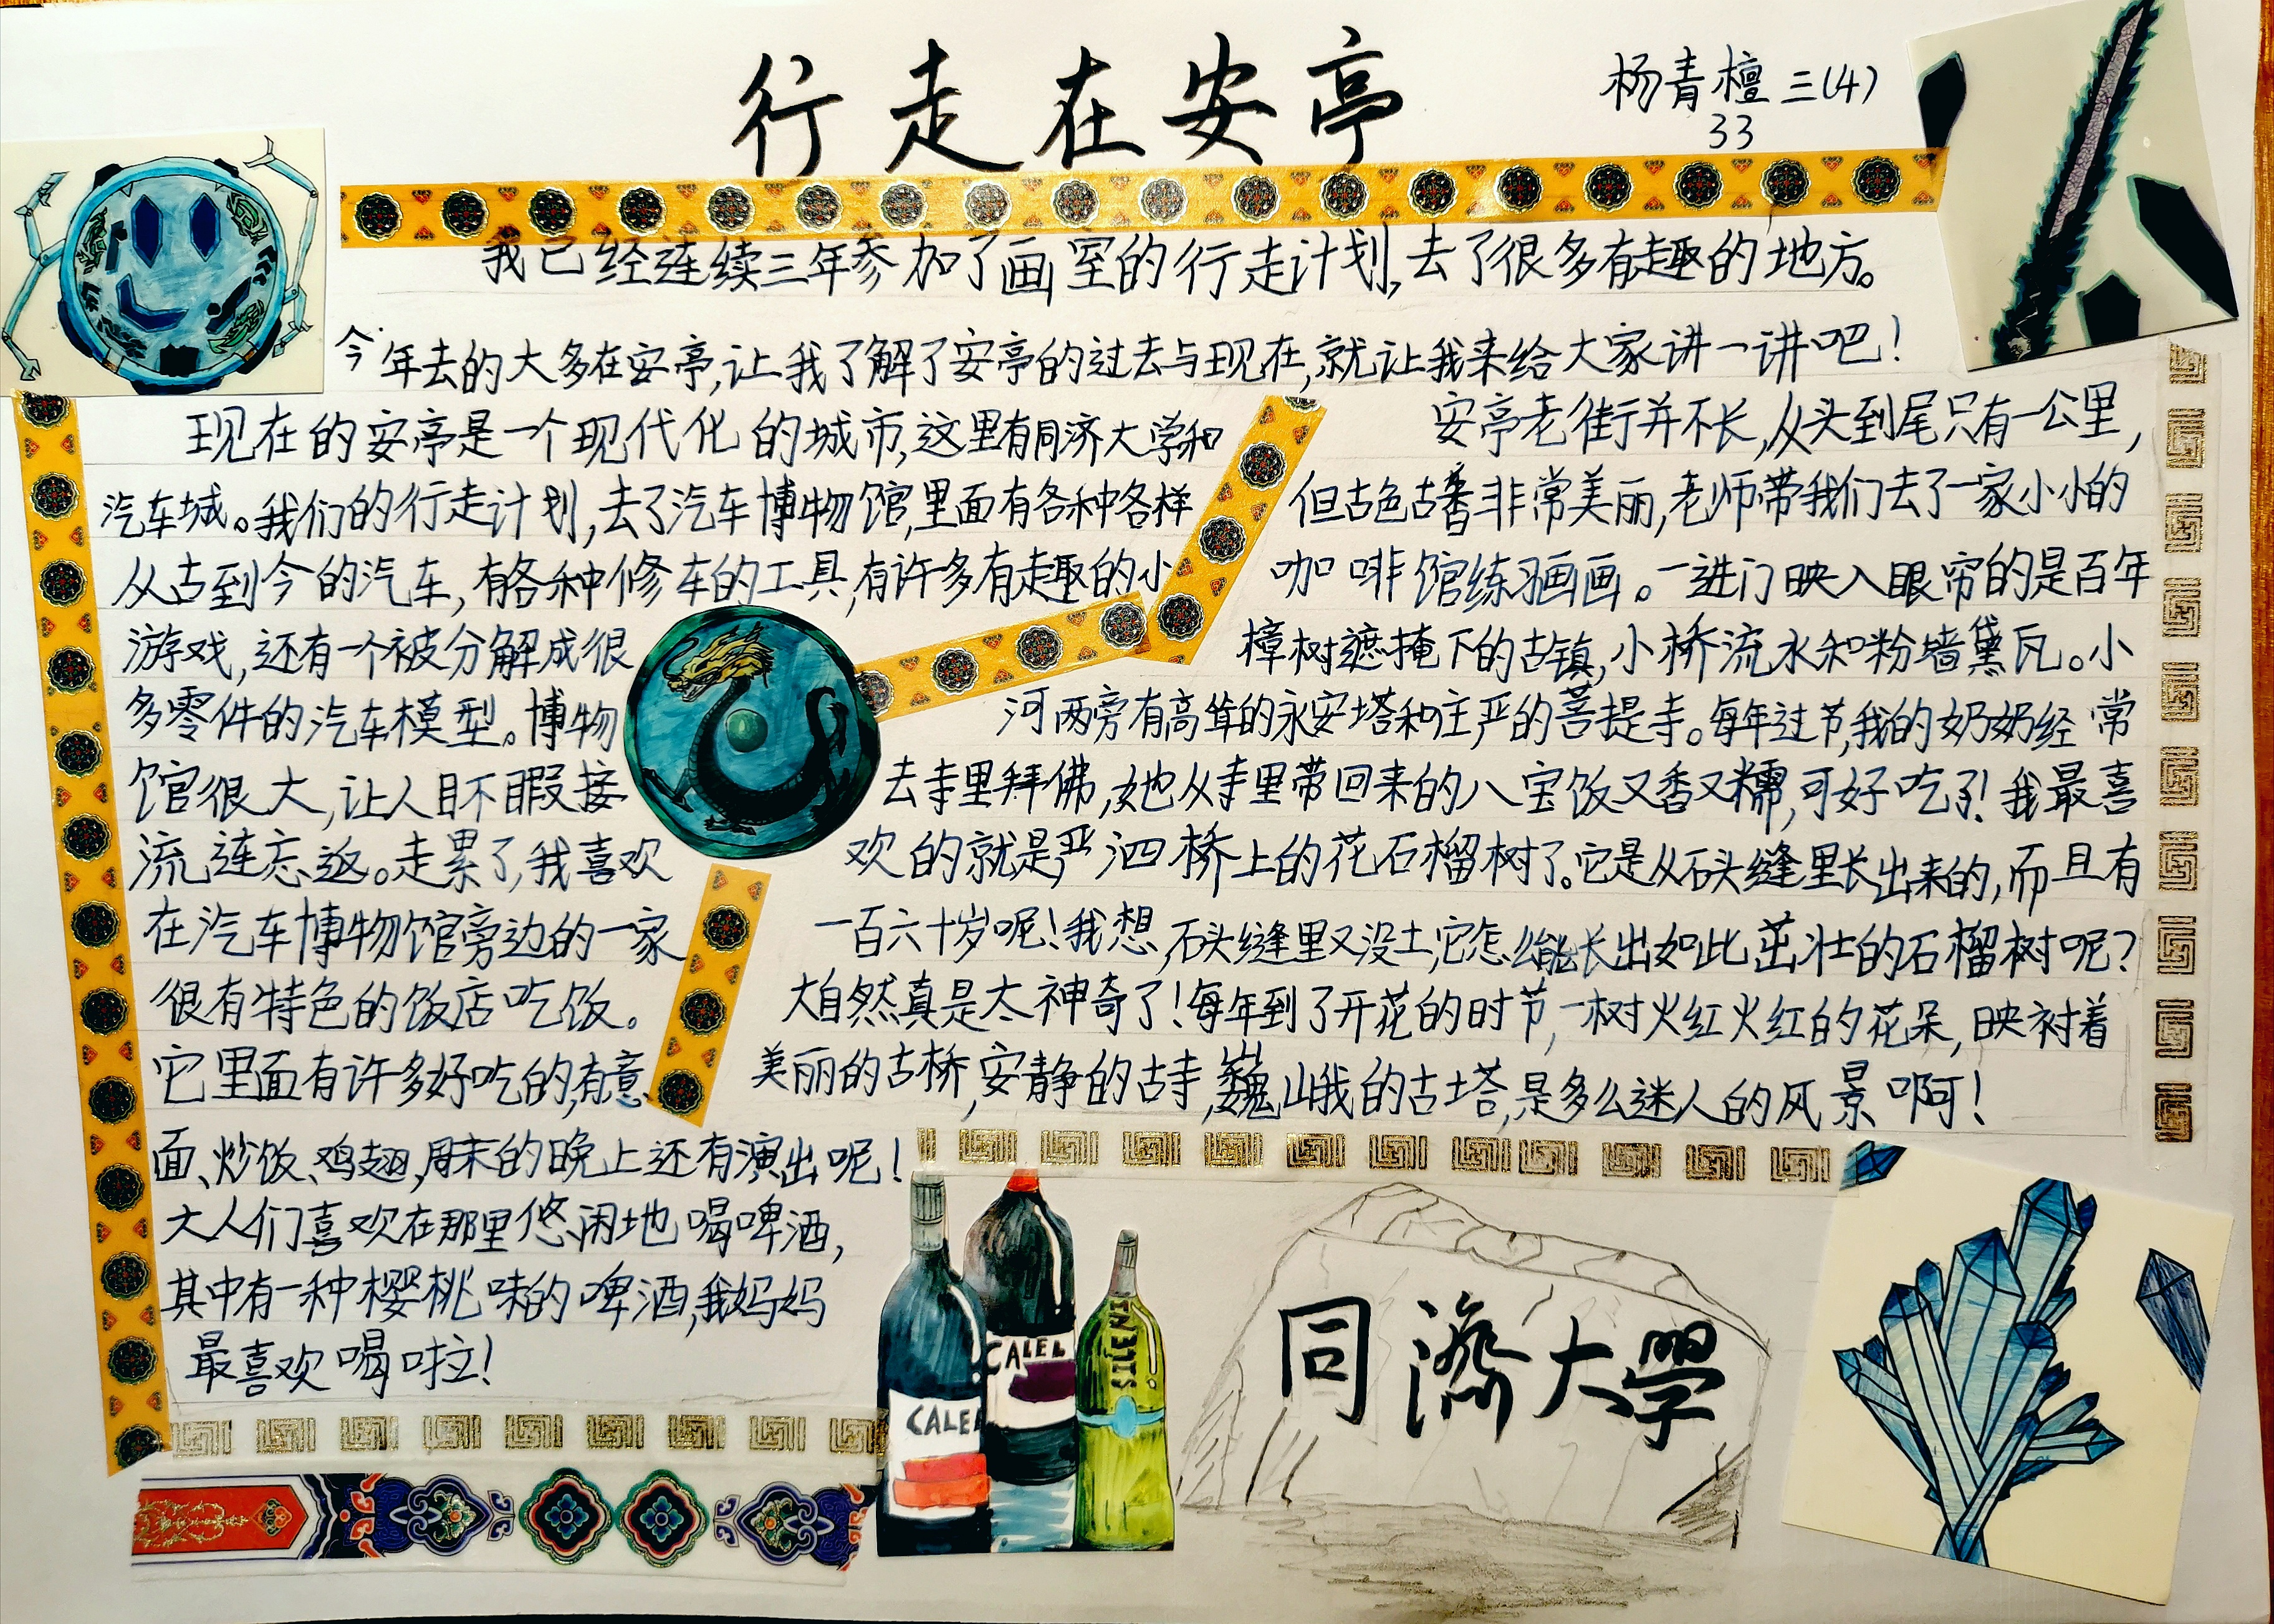 行走在安亭
杨青檀 三(4)
33
我已经连续三年参加了画室的行走计划,去了很多有趣的地方。
今年去的大多在安亭,让我了解了安亭的过去与现在,就让我来给大家讲一讲吧!
现在的安亭是一个现代化的城市,这里有同济大学和
汽车城。我们的行走计划,去了汽车博物馆,里面有各种各样
从古到今的汽车,有各种修车的工具,有许多有趣的小
游戏,还有一个被分解成很
多零件的汽车模型。博物
馆很大,让人目不暇接
流连忘返。走累了,我喜欢
在汽车博物馆旁边的一家
很有特色的饭店吃饭。
它里面有许多好吃的,有意
面、炒饭、鸡翅,周末的晚上还有演出呢!
大人们喜欢在那里悠闲地喝啤酒,
其中有一种樱桃味的啤酒,我妈妈
最喜欢喝啦!
安亭老街并不长,从头到尾只有一公里,
但古色古香非常美丽,老师带我们去了一家小小的
咖啡馆练习画画。一进门映入眼帘的是百年
樟树遮掩下的古镇,小桥流水和粉墙黛瓦。小
河两旁有高耸的永安塔和庄严的菩提寺。每年过节,我的奶奶经常
去寺里拜佛,她从寺里带回来的八宝饭又香又糯,可好吃了!我最喜
欢的就是严泗桥上的花石榴树了。它是从石头缝里长出来的,而且有
一百六十岁呢!我想,石头缝里又没土,它怎么能长出如此茁壮的石榴树呢?
大自然真是太神奇了!每年到了开花的时节,一树火红火红的花朵,映衬着
美丽的古桥,安静的古寺,巍峨的古塔,是多么迷人的风景啊!
CALEL
CALEL
SILENI
同濟大學